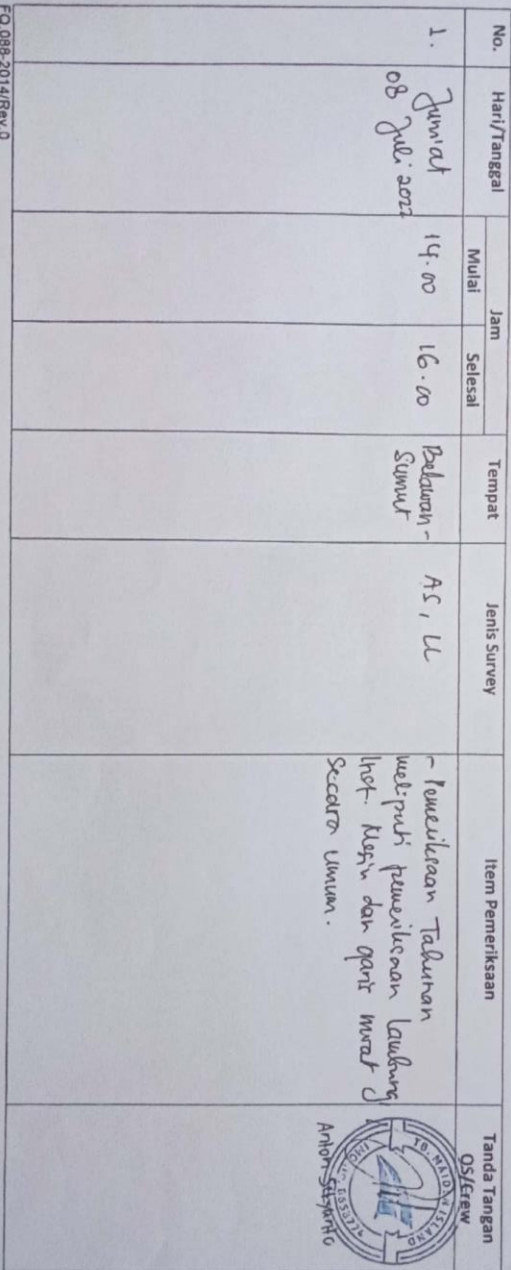 No.
Hari/Tanggal
Jam
Mulai
Selesai
Tempat
Jenis Survey
Item Pemeriksaan
Tanda Tangan
OS/Crew
1.
Jum'at
08 Juli 2022
14.00
16.00
Belawan -
Sumut
AS, LL
- Pemeriksaan Tahunan
meliputi pemeriksaan Lambung,
Inst. Mesin dan garis muat
Secara umum.
TB. MAIDEN ISLAND
IMO
Anton Setyanto
FO.088-2014/Rev.0